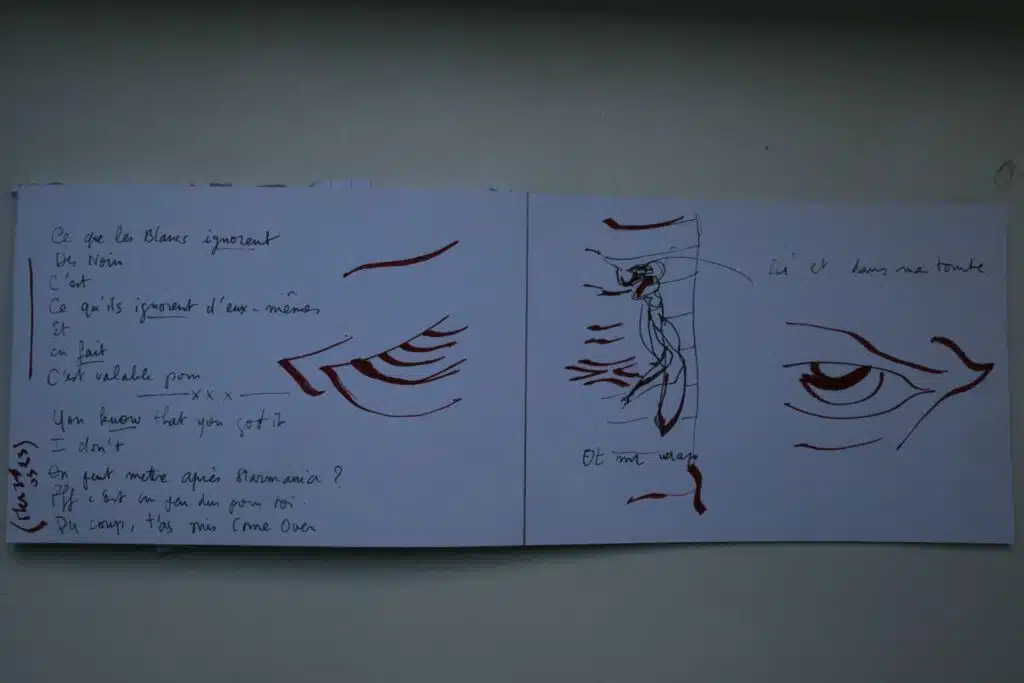 Ce que les Blancs ignorent
Des Noirs
C'est
Ce qu'ils ignorent d'eux-mêmes
Et
en fait
C'est valable pour
xx x
You know that you got it
I don't
On peut mettre après Starmania ?
Pff c'est un peu dur pour toi.
Du coup, t'as mis Come Over
Et me
Ici et dans ma tombe